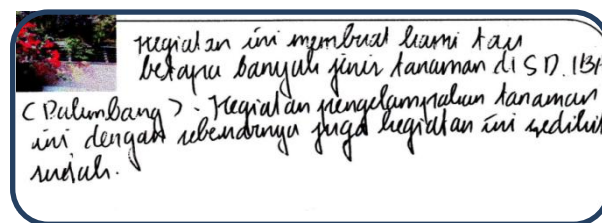 Kegiatan ini membuat kami tau
betapa banyak jenis tanaman di SD. IBA
(Palembang). Kegiatan pengelompokan tanaman
ini dengan sebenarnya juga kegiatan ini sedikit
susah.